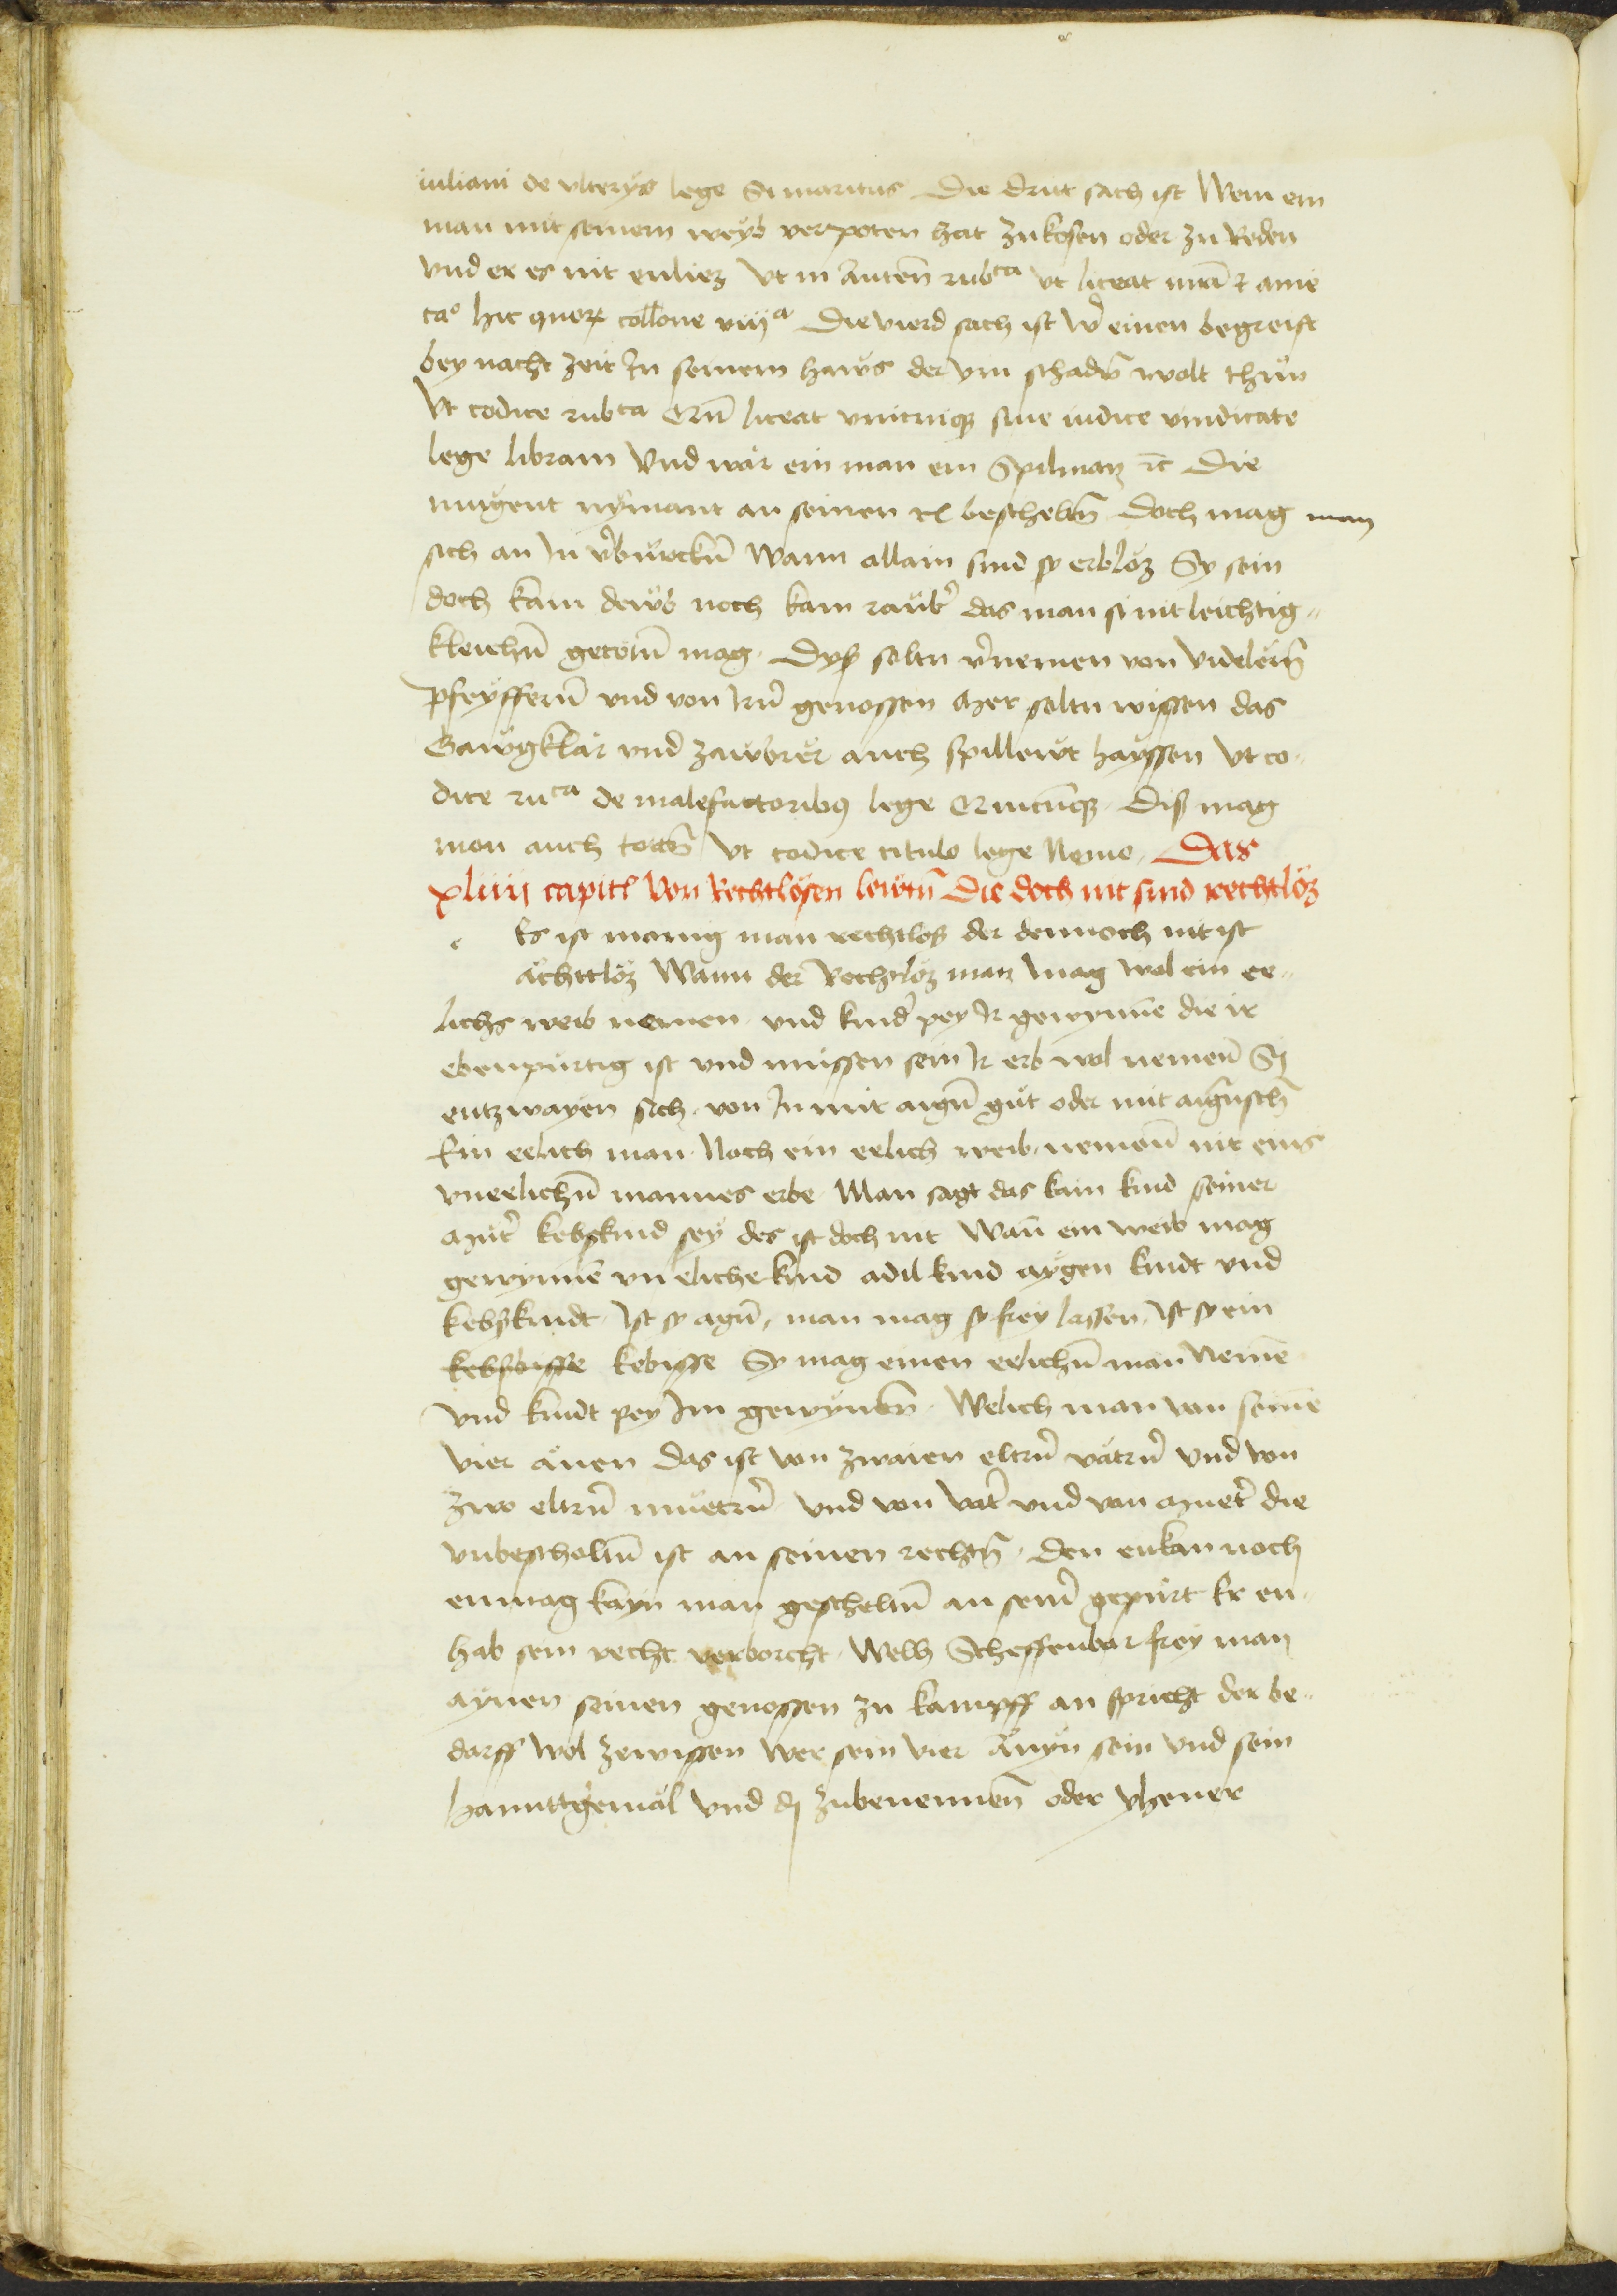 iuliani de vlterÿs lege Si maritus Die drit sach ist Wem ein
man mit seinem weÿb verpoten hat zukosen oder zu Reden
vnd er es nit enliez Vt in Auten̄ rubca vt liceat mr̄i ⁊ auie
cao hic quoꝝ coll̄one viija Die vierd sach ist wˀ einen begreift
bey nacht zeit In seinem haẅs der ym schadn̄ wolt thün
Vt codice rubca Qn̄ liceat vnicuiqꝫ sine iudice vindicate
lege libram Vnd wär ein man ein Spilman ⁊c̄ Die
mugent nÿmant an seinen rcꝉ bescheltn̄ doch mag man
sich an In vˀbürckn̄ Wann allain sind sy erbloz Sy sein
doch kain dewb noch kain raübˀ das man si nit leichtig-
kleichn̄ getötn̄ mag. Dyß soltu vˀnemen von Videlern̄
Pfeÿffern̄ vnd von Irn̄ genossen Mer soltu wissen das
Gaẅgklär vnd zaẅbrer auch spillewt haÿssen Vt co-
dice ruca de malefactoribꝰ lege Quicūqꝫ Diß mag
man auch tottn̄ Vt codice titulo lege Nemo. Das
xliiij capitꝉ Von Rechtlosen lewtn̄ Die doch nit sind rechtlöz
e Es ist manig man rechtloß der dennoch nit ist
ächttlöz Wann der Rechtloz man mag wol ein ee-
lichs weib nemen vnd kindˀ pey Ir gewynnē die ir
ebenpürtig ist vnd müssen sein Ir erb wol nemen̄ Sy
entzwayen sich. von In mit aign̄ güt oder mit aigensch̄
Ein eelich man Noch ein eelich weib. nemen̄ nit eins
vneelichn̄ mannes erbe Man sagt das kain kind seiner
Mütˀ kebskind seÿ des ist doch nit Wan̄ ein weib mag
gewynnē vn eliche kind adil kind aÿgen kindt vnd
kebskindt. Ist sy agn̄. man mag sy freÿ lassen. Ist sy ein
kebsbisse kebisse Sy mag einen eelichn̄ man Nemē
Vnd kindt pey Im gewÿnn̄. Welich man von seinē
Vier änen das ist von zwaien eltrn̄ vätrn̄ vnd von
zwo eltrn̄ muetrn̄ Vnd von Vatˀ vnd von Muetˀ die
vnbescholtn̄ ist an seinen rechtn̄. den enkan noch
enmag kayn man gescheltn̄ an seinˀ gepürt Er en-
hab sein recht verborcht. Welh Scheffenbar freÿ man
aÿnen seinen genossen zu kampff an spricht der be-
darff Wol zewissen wer sein vier Änyn sein vnd sein
hannttgemäl vnd dj zubenennen̄ oder yhener